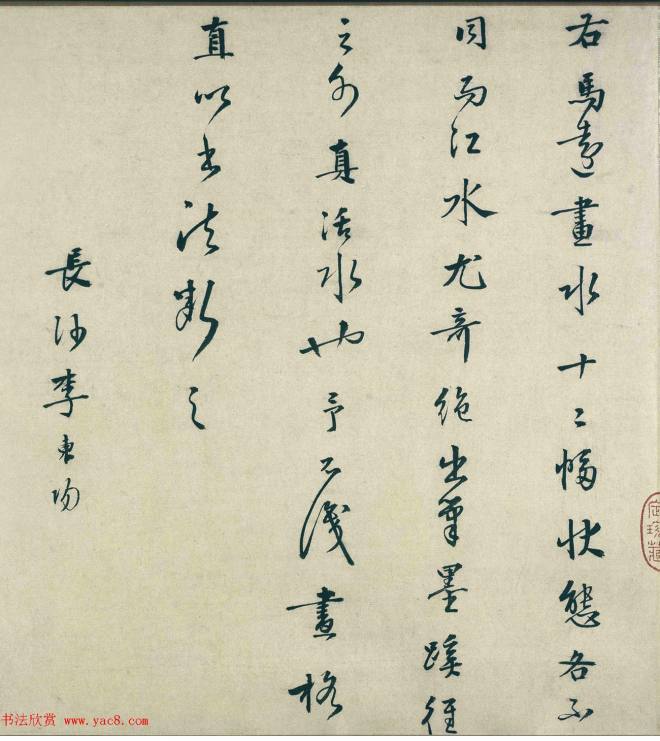 右馬遠畫水十二幅狀態各不
同而江水尤奇絕出筆墨蹊徑
之外真活水也予不識畫格
直以書法斷之
長沙李東陽
书法欣赏 www.yac8.com